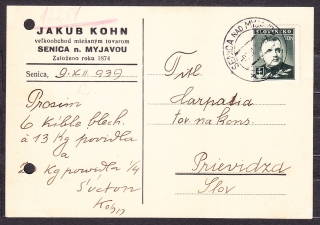 JAKUB KOHN
veľkoobchod miešaným tovarom
SENICA n. MYJAVOU
Založeno roku 1874
Senica, 9. XII 939
Prosím
6 kiblo blech.
á 13 Kg povidla
a
2 Kg powidla 1/4
S úctou
Kohn
SENICA NAD MYJ
SLOVENSKO
Titl.
Karpatia
tov. na kons.
Prievidza
Slov